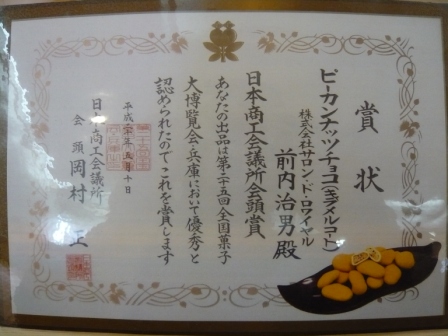 賞状
ピーカンナッツチョコ(キャラメルコート)
株式会社サロンドロワイヤル
前内治男殿
日本商工会議所会頭賞
あなたの出品は第二十五回全国菓子
大博覧会・兵庫において優秀と
認められたのでこれを賞します
平成二十年五月十日
日本商工会議所
会頭 岡村 正